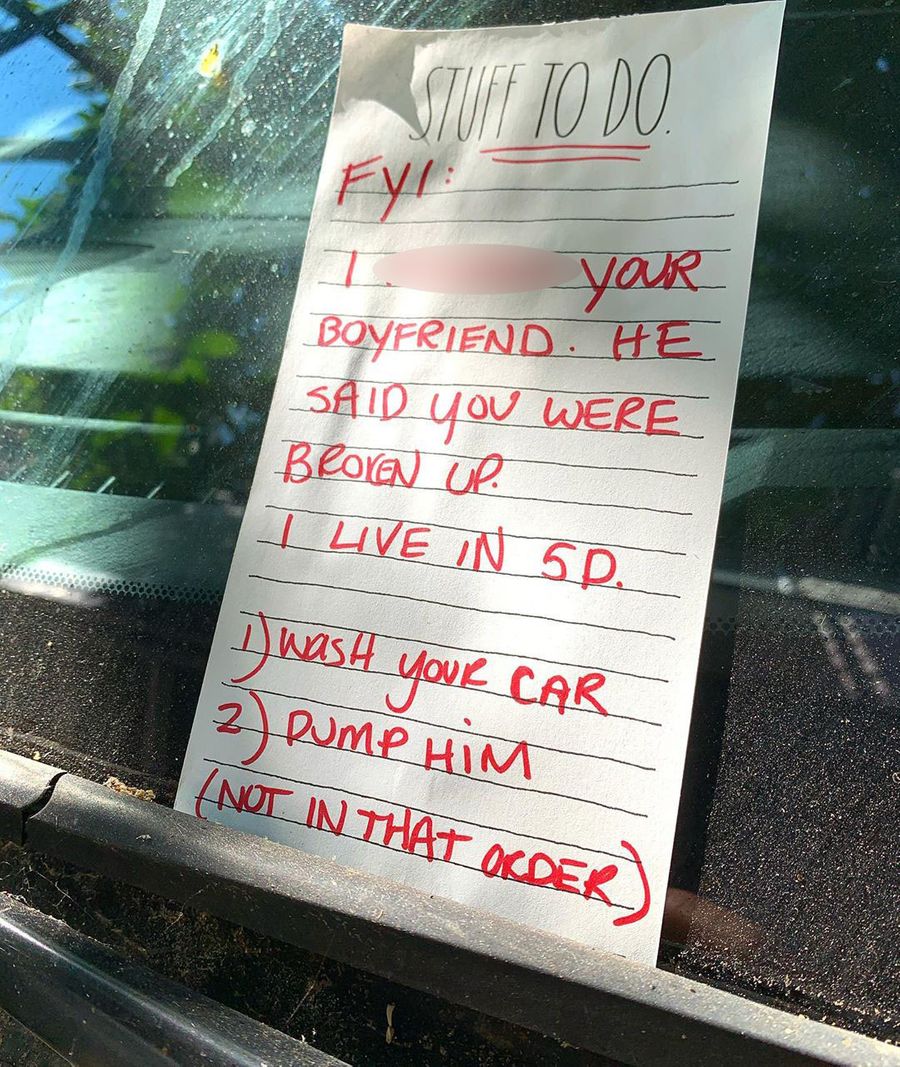 STUFF TO DO.
FYI:
I YOUR
BOYFRIEND. HE
SAID YOU WERE
BROKEN UP.
I LIVE IN 5D.
1) WASH YOUR CAR
2) DUMP HIM
(NOT IN THAT ORDER)